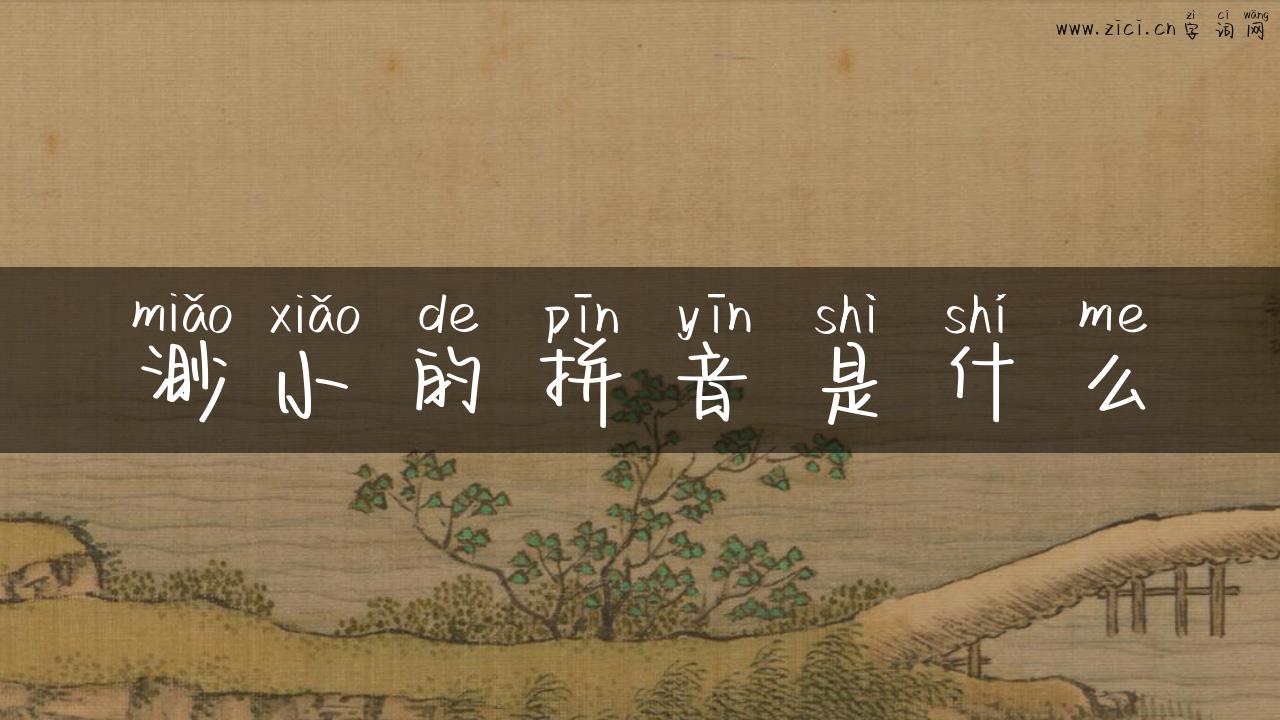 zì cí wǎng
www.zici.cn 字词网
miǎo xiǎo de pīn yīn shì shí me
渺小的拼音是什么